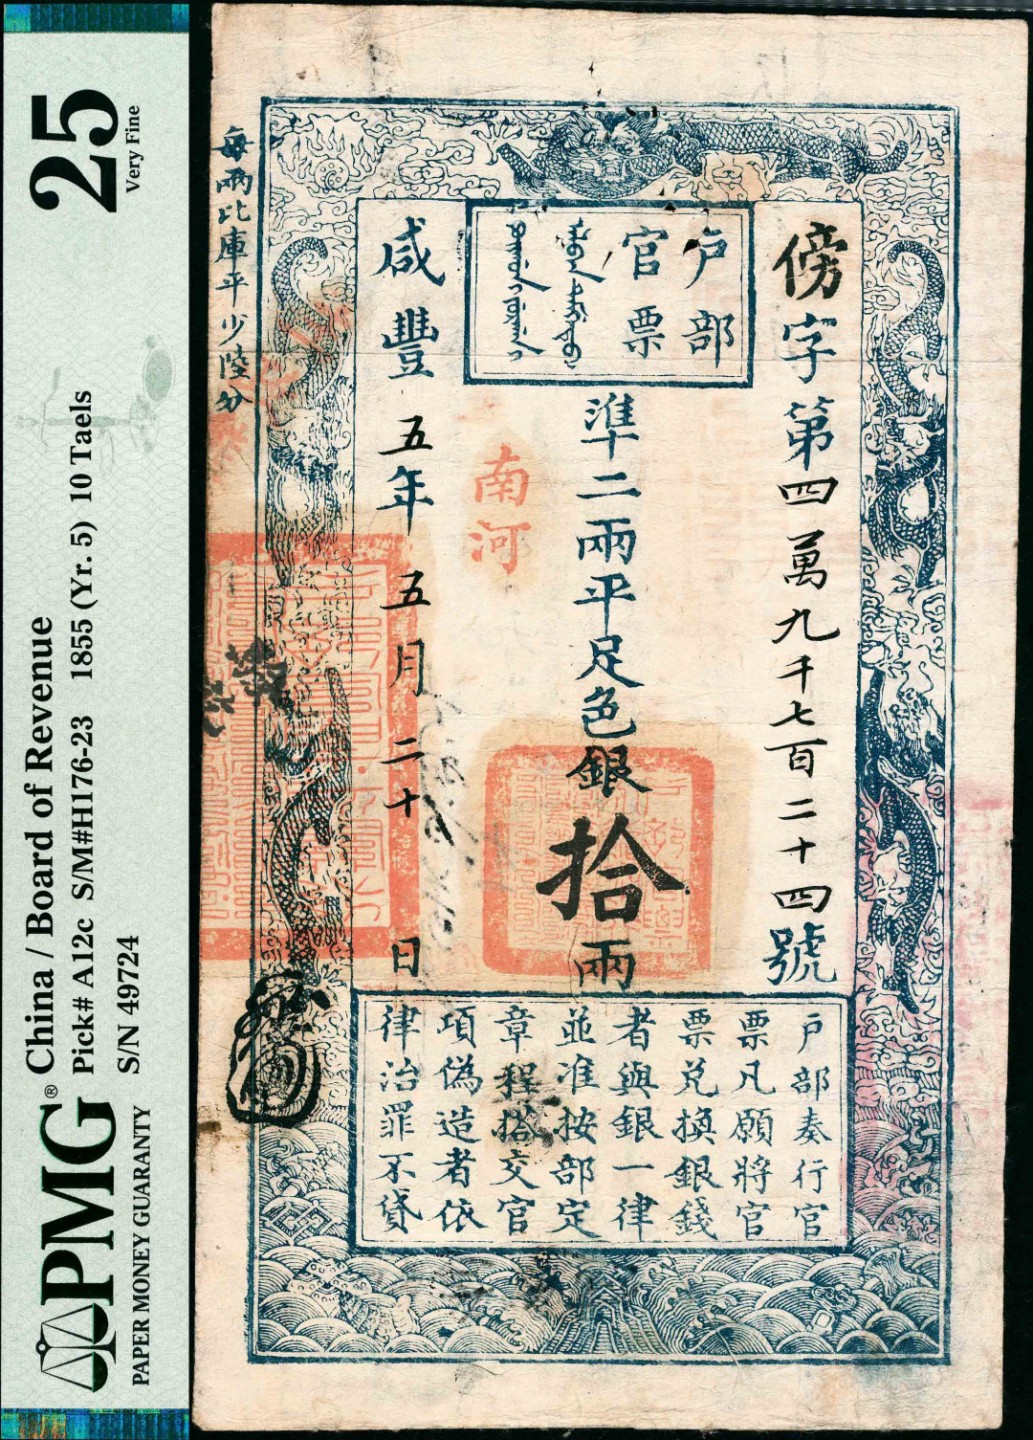 25
Very Fine
China / Board of Revenue
Pick# A12c SM#H176-23 1855 (Yr. 5) 10 Taels
S/N 49724
PMG®
PAPER MONEY GUARANTY
戶部
官票
傍字第四萬九千七百二十四號
準二兩平足色銀拾兩
南河
咸豐五年五月二十日
每兩比庫平少陸分
戶部奏行官
票凡願將官
票兌換銀錢
者與銀一律
並准按部定
章程搭交官
項偽造者依
律治罪不貸